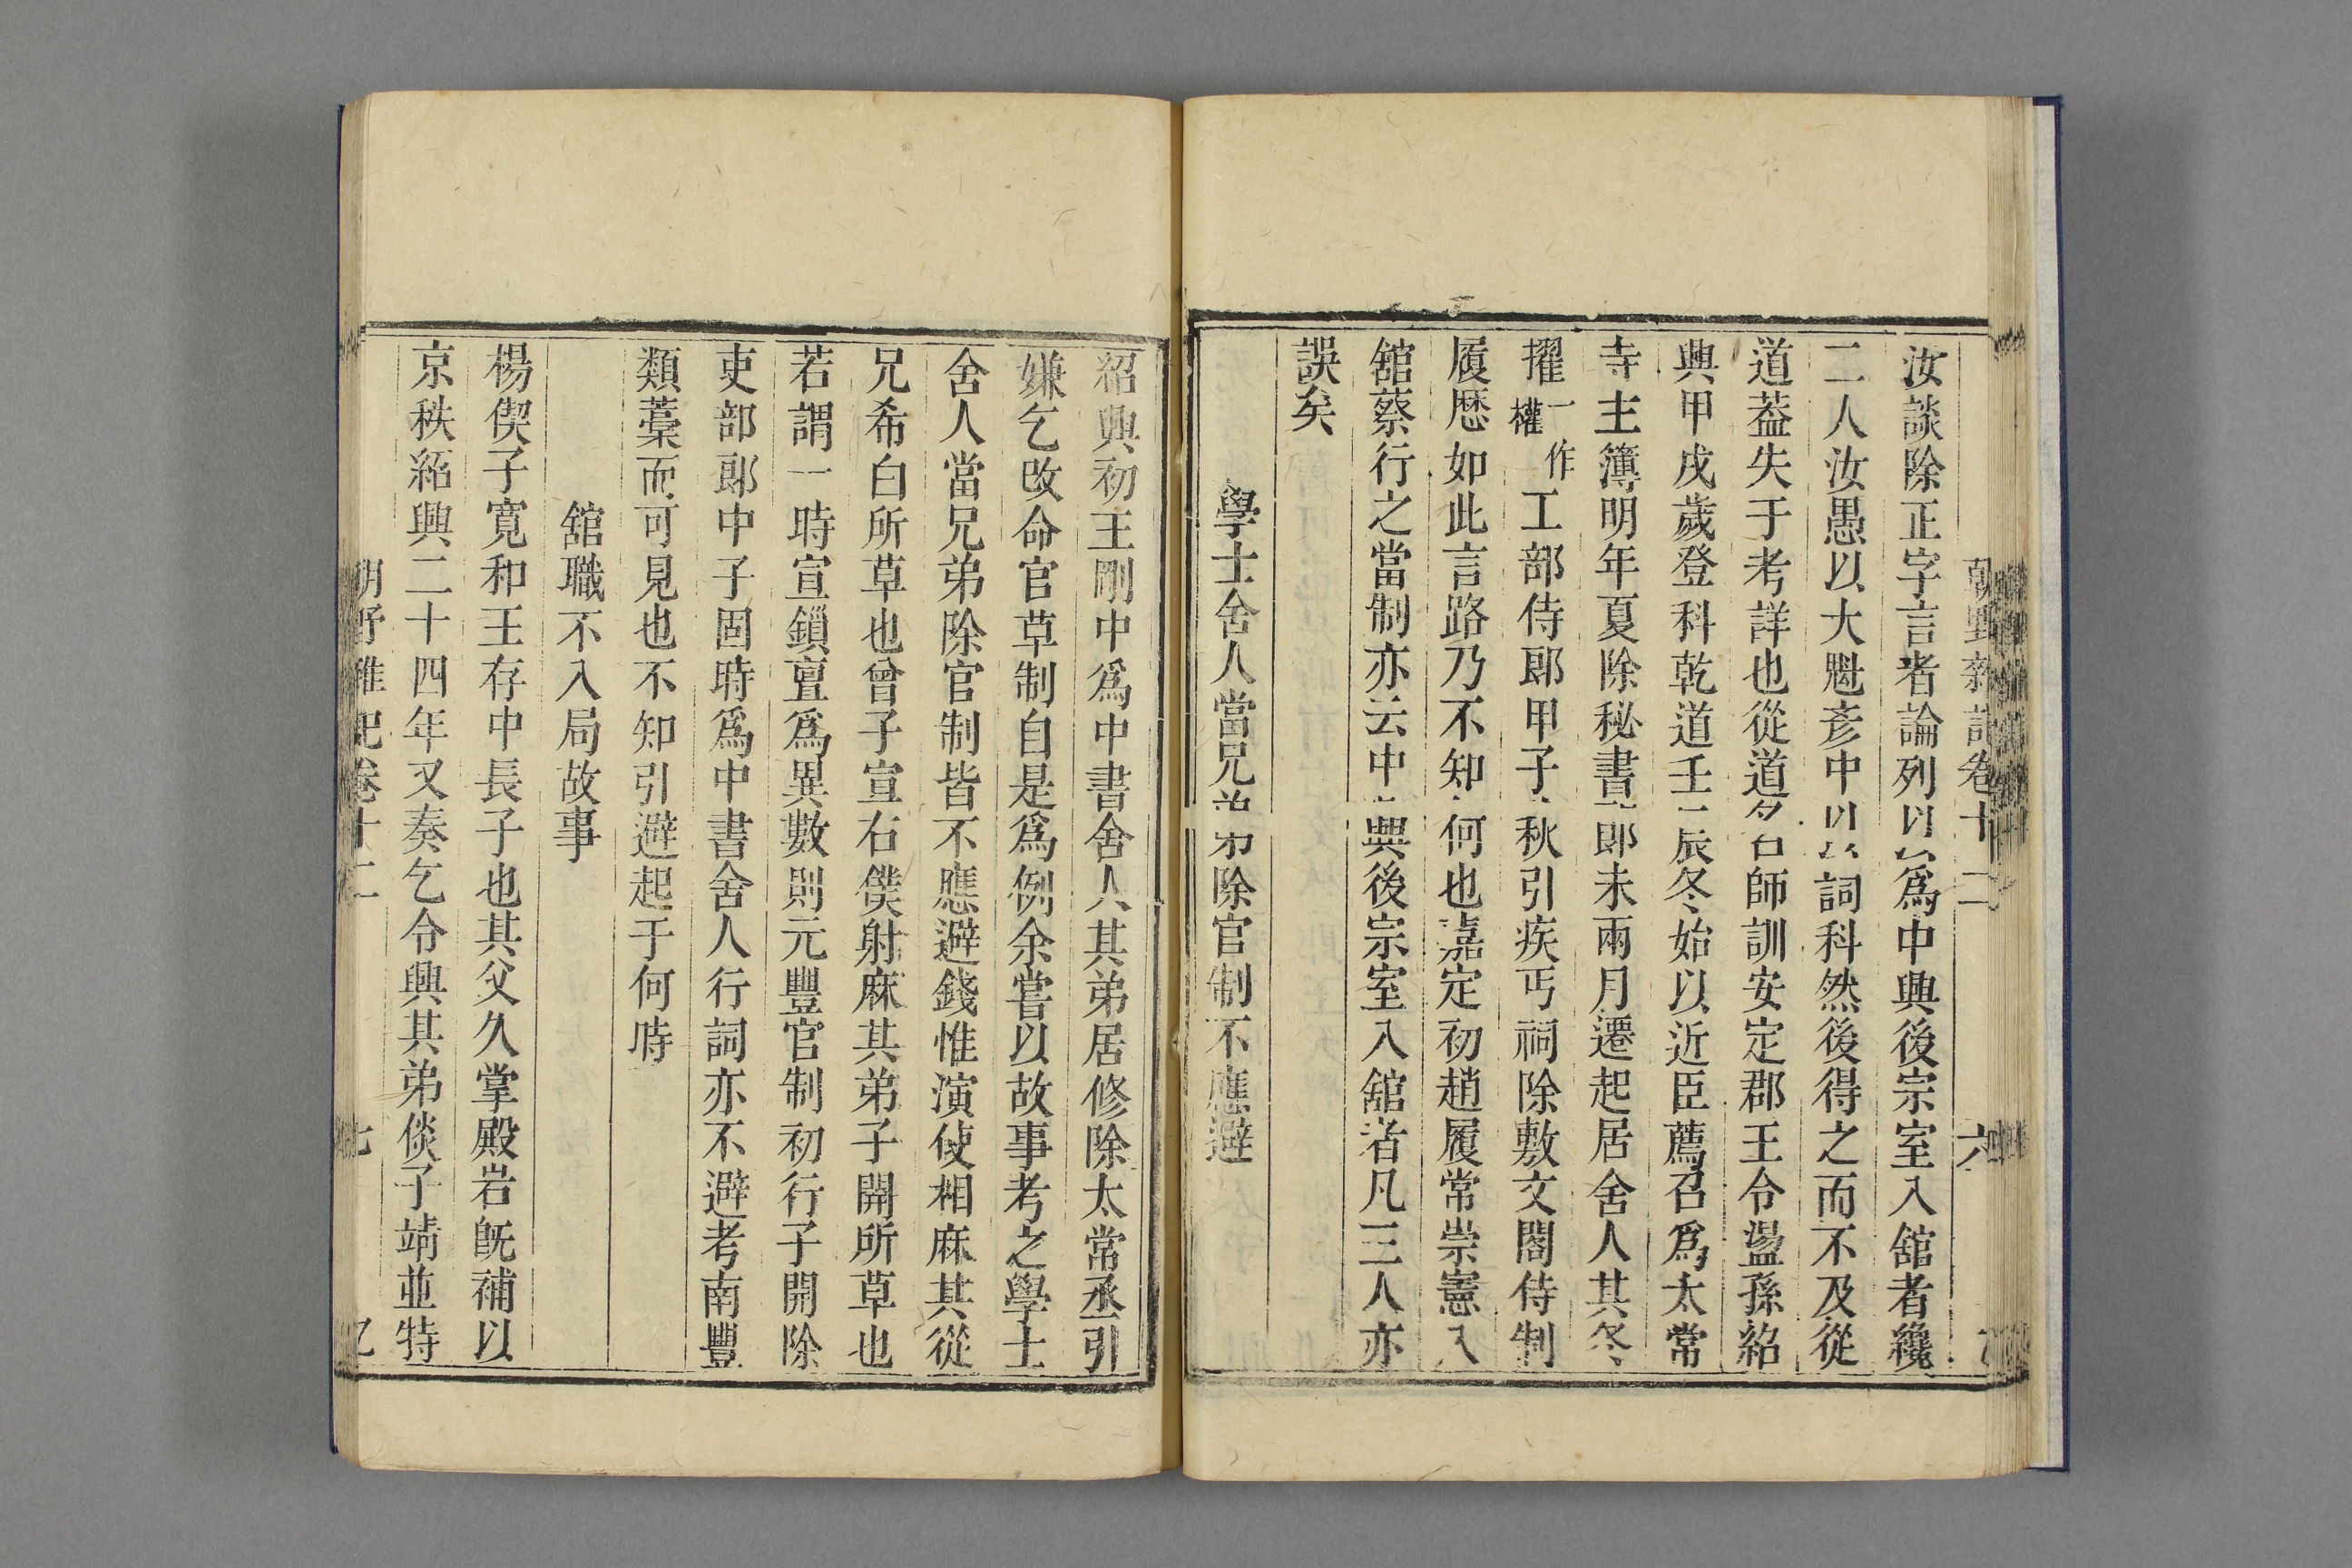 朝野雜記卷十二 六
汝談除正字言者論列以爲中興後宗室入舘者纔
二人汝愚以大魁彥中以詞科然後得之而不及從
道葢失于考詳也從道名師訓安定郡王令盪孫紹
興甲戌歲登科乾道壬辰冬始以近臣薦召爲太常
寺主簿明年夏除秘書郎未兩月遷起居舍人其冬
擢一作權工部侍郎甲子秋引疾丐祠除敷文閣侍制
履歷如此言路乃不知何也嘉定初趙履常崇憲入
舘蔡行之當制亦云中興後宗室入舘者凡三人亦
誤矣
學士舍人當兄弟除官制不應避
紹興初王剛中爲中書舍人其弟居修除太常丞引
嫌乞改命官草制自是爲例余嘗以故事考之學士
舍人當兄弟除官制皆不應避錢惟演使相麻其從
兄希白所草也曾子宣右僕射麻其弟子開所草也
若謂一時宣鎖亶爲異數則元豐官制初行子開除
吏部郎中子固時爲中書舍人行詞亦不避考南豐
類藁而可見也不知引避起于何時
舘職不入局故事
楊偰子寬和王存中長子也其父久掌殿岩旣補以
京秩紹興二十四年又奏乞令興其弟倓子靖並特
朝野雜記卷十二 七